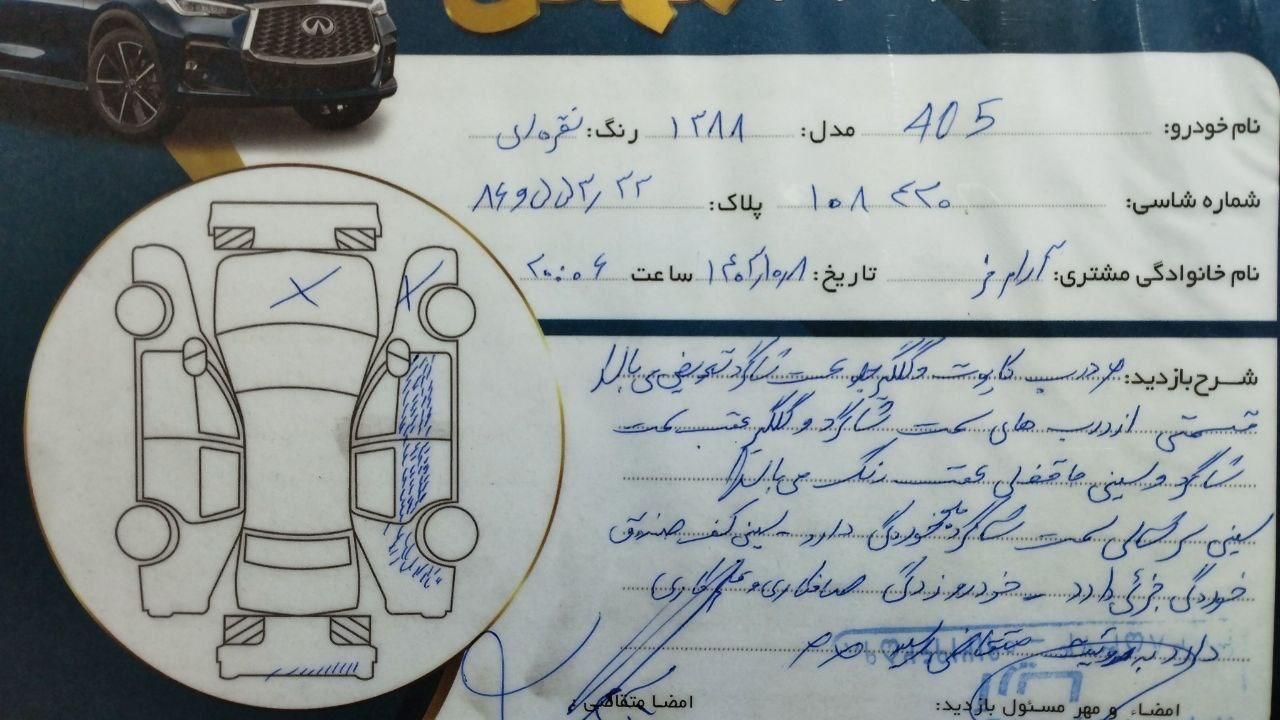 نام خودرو: 405 مدل: ۱۳۸۸ رنگ: نقره‌ای
شماره شاسی: ۱۰۸۴۳۰ پلاک:
نام خانوادگی مشتری: آرام فر تاریخ: ساعت ۲۰:۰۶
شرح بازدید: درب کاپوت و گلگیر جلو سمت شاگرد تعویض می باشد
قسمتی از درب های سمت شاگرد و گلگیر عقب سمت
شاگرد و سینی عقب رنگ می باشد
سینی سمت شاگرد خوردگی دارد - سینی کف صندوق
خوردگی جزئی دارد - خودرو زدگی صافکاری و
دارد به
امضا متقاضی:
امضاء و مهر مسئول بازدید: